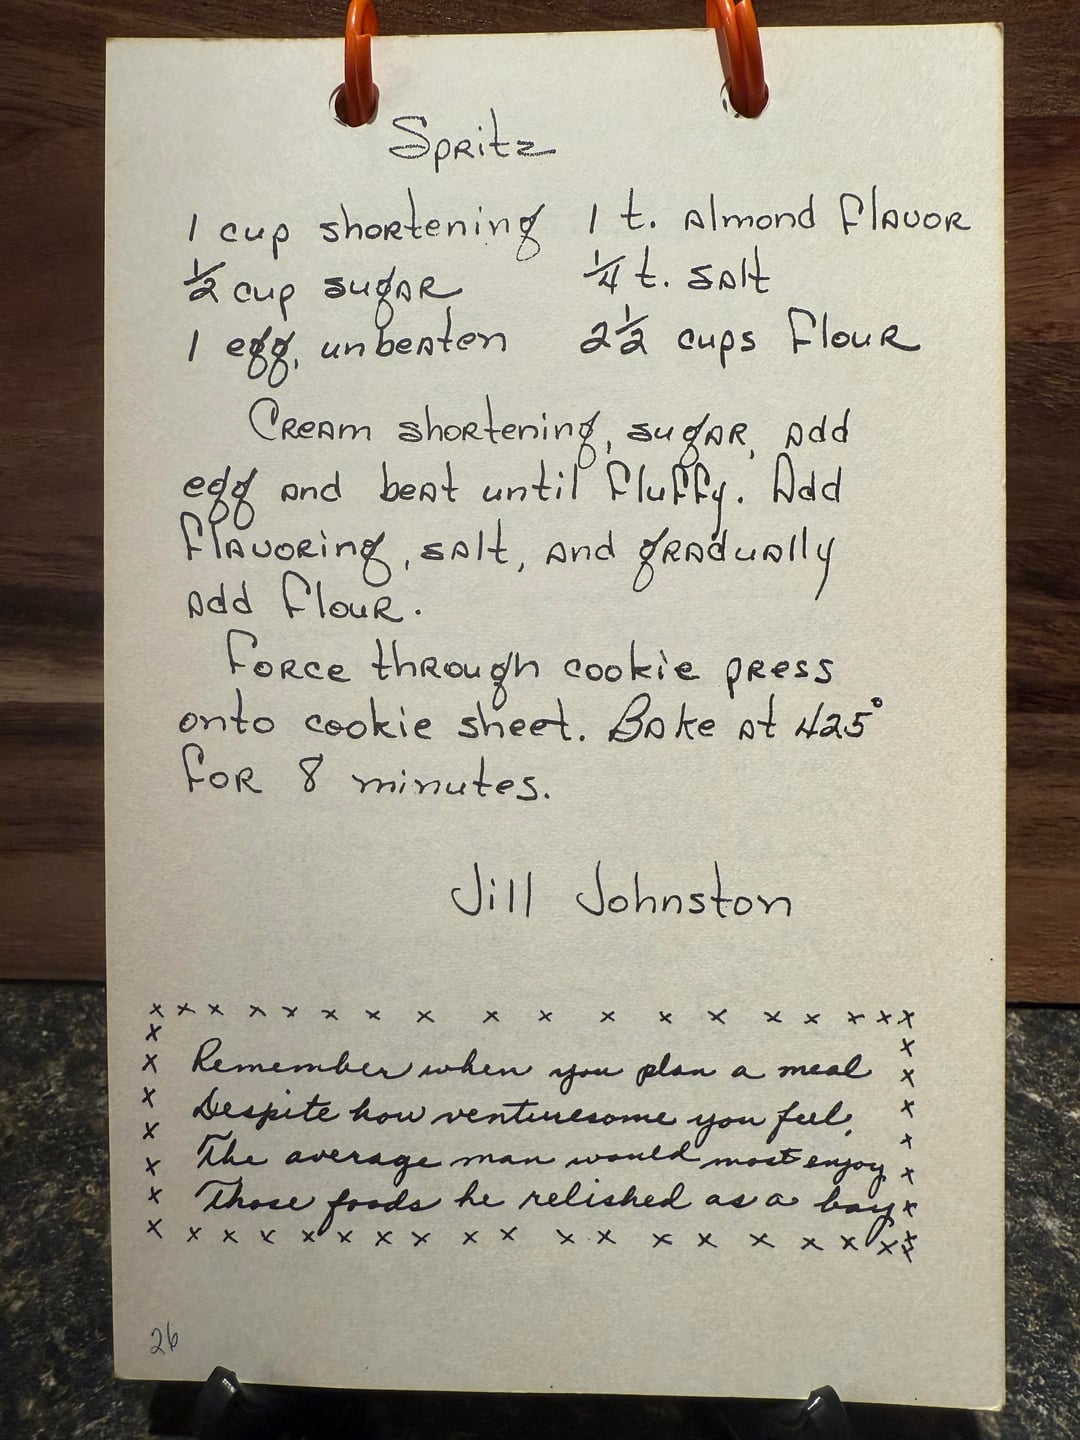 Spritz
1 cup shortening 1 t. almond flavor
½ cup sugar ¼ t. salt
1 egg, unbeaten 2½ cups flour
Cream shortening, sugar, add
egg and beat until fluffy. Add
flavoring, salt, and gradually
add flour.
Force through cookie press
onto cookie sheet. Bake at 425°
for 8 minutes.
Jill Johnston
x x x x x x x x x x x x x x x x x x
Remember when you plan a meal
Despite how venturesome you feel,
The average man would most enjoy
Those foods he relished as a boy
x x x x x x x x x x x x x x x x x x
26